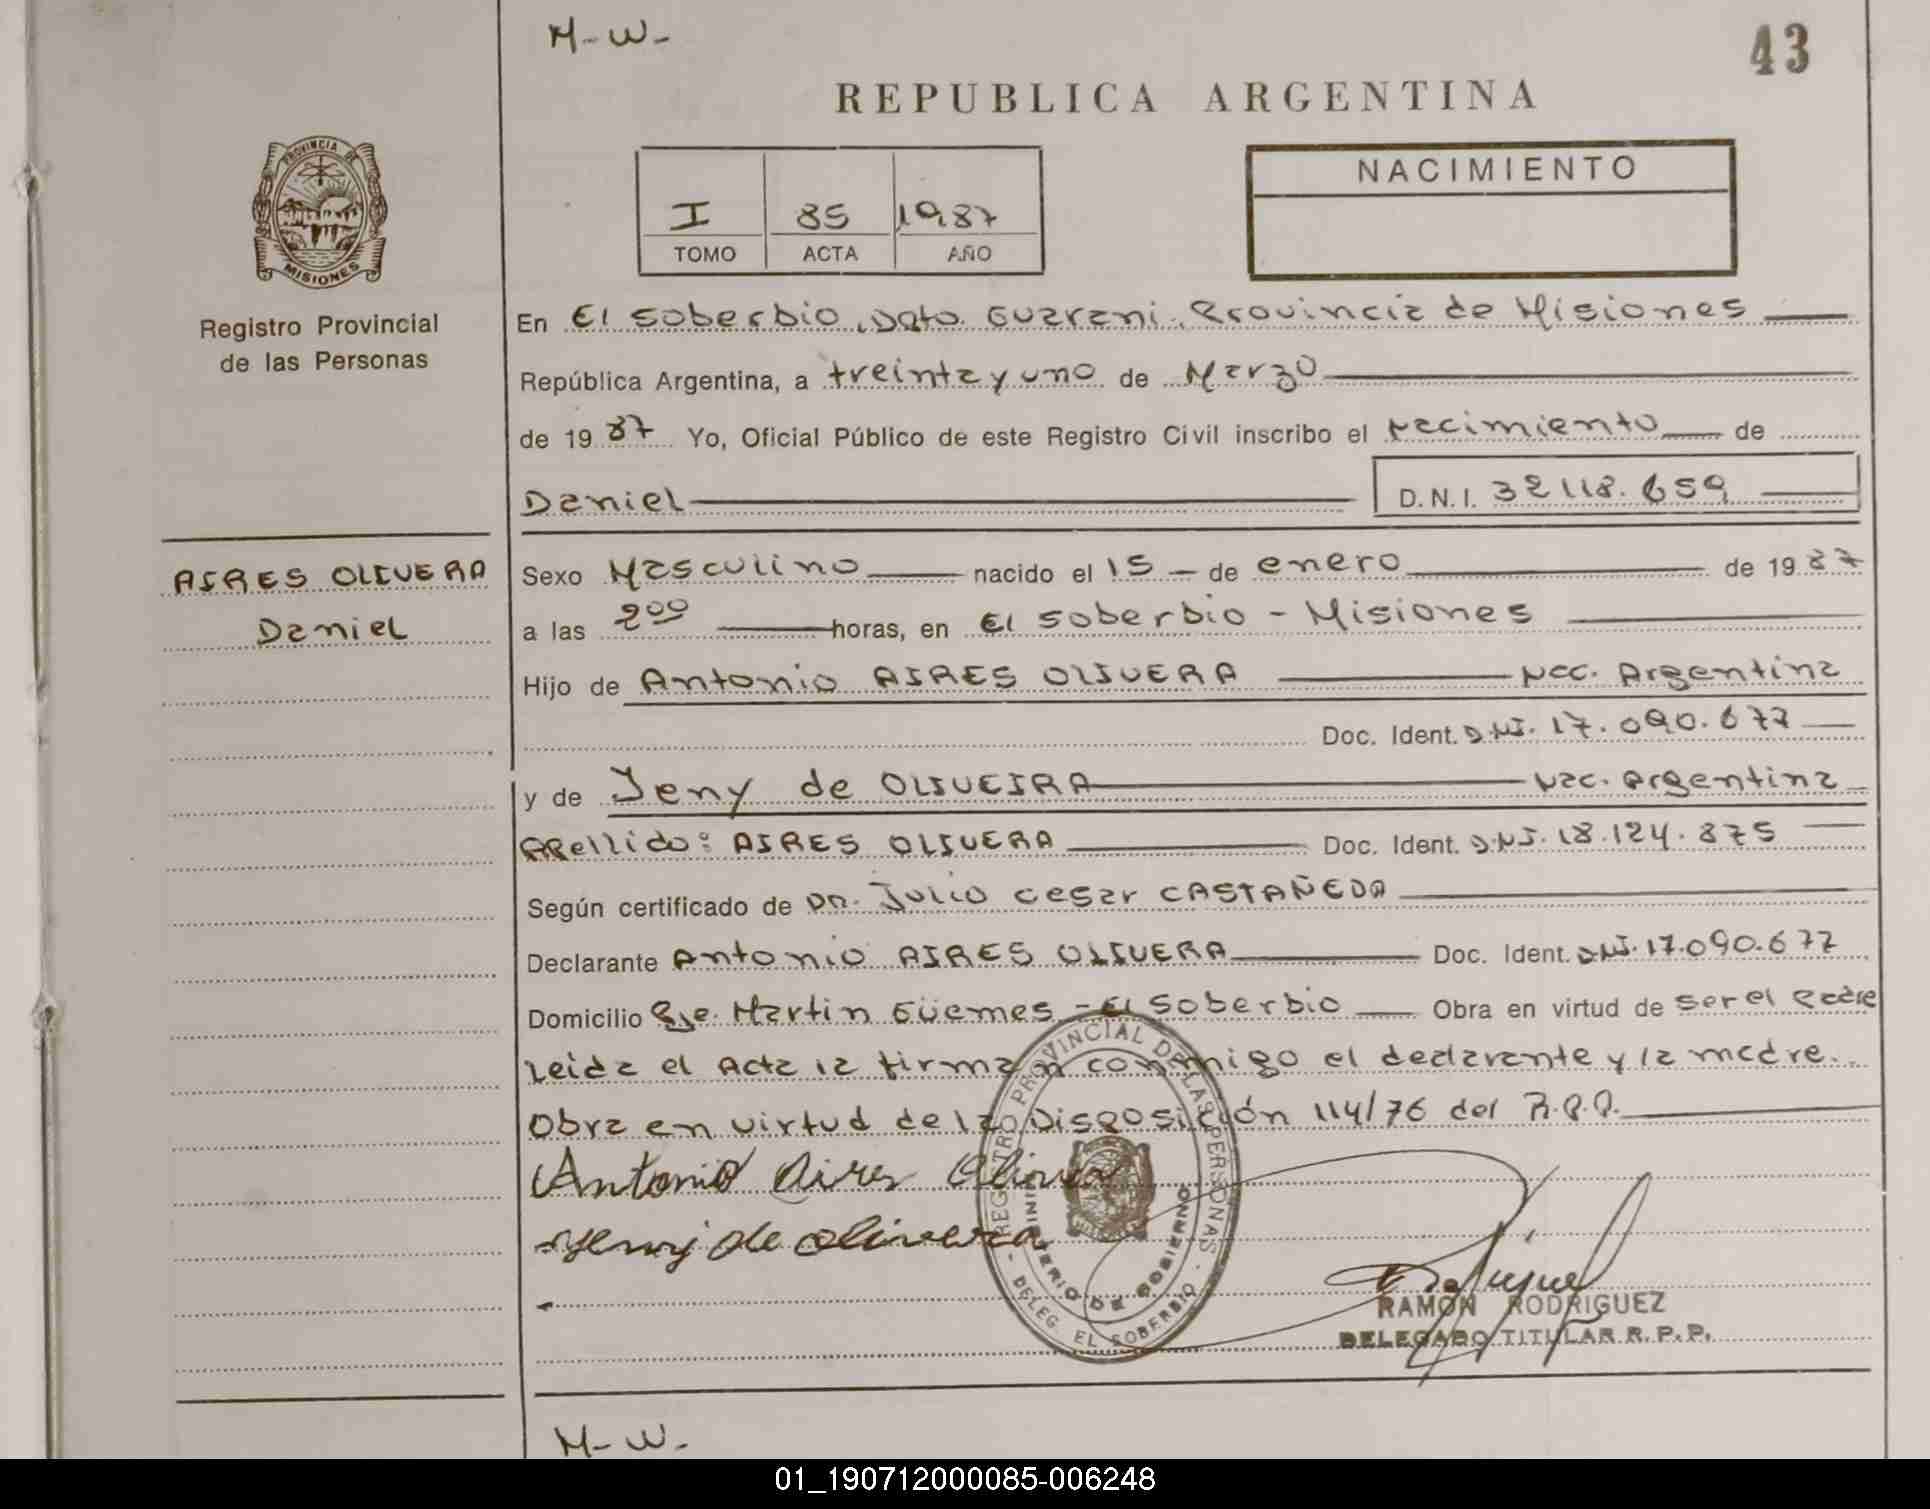 M-W-
43
REPUBLICA ARGENTINA
PROVINCIA DE
MISIONES
NACIMIENTO
I 85 1987
TOMO ACTA AÑO
Registro Provincial
de las Personas
En El Soberbio, Dpto. Guarani, Provincia de Misiones
República Argentina, a treinta y uno de Marzo
de 19 87 Yo, Oficial Público de este Registro Civil inscribo el nacimiento de
Daniel D.N.I. 32118.659
AIRES OLIVERA
Daniel
Sexo Masculino nacido el 15 - de enero de 19 87
a las 2⁰⁰ horas, en El Soberbio - Misiones
Hijo de Antonio AIRES OLIVERA Nac. Argentina
Doc. Ident. D.N.I. 17.090.677
y de Yeny de OLIVEIRA Nac. Argentina
Apellido: AIRES OLIVERA Doc. Ident. D.N.I. 18.124.875
Según certificado de DR. Julio Cesar CASTAÑEDA
Declarante Antonio AIRES OLIVERA Doc. Ident. D.N.I. 17.090.677
Domicilio Pje. Martin Güemes - El Soberbio Obra en virtud de ser el padre
Leida el Acta la firman conmigo el declarante y la madre.
Obra en virtud de la Disposición 114/76 del R.P.P.
Antonio Aires Olivera
Yeny de olivera
REGISTRO PROVINCIAL DE LAS PERSONAS
MINISTERIO DE GOBIERNO
- DELEG. EL SOBERBIO -
RAMON RODRIGUEZ
DELEGADO TITULAR R.P.P.
M-W-
01_190712000085-006248